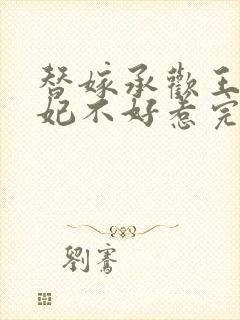 替嫁承歡王
妃不好惹完
劉騫